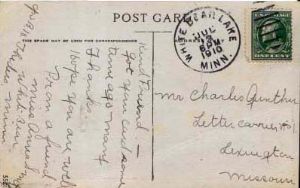 POST CARD
THIS SPACE MAY BE USED FOR CORRESPONDENCE
WHITE BEAR LAKE
JUL
3
6 PM
1910
MINN.
Kind Friend -
Got your card some
time ago many
thanks.
hope you are well
From a friend
Miss
White Bear
Minn
Mr Charles Gunther
Letter carrier
Lexington
Missouri